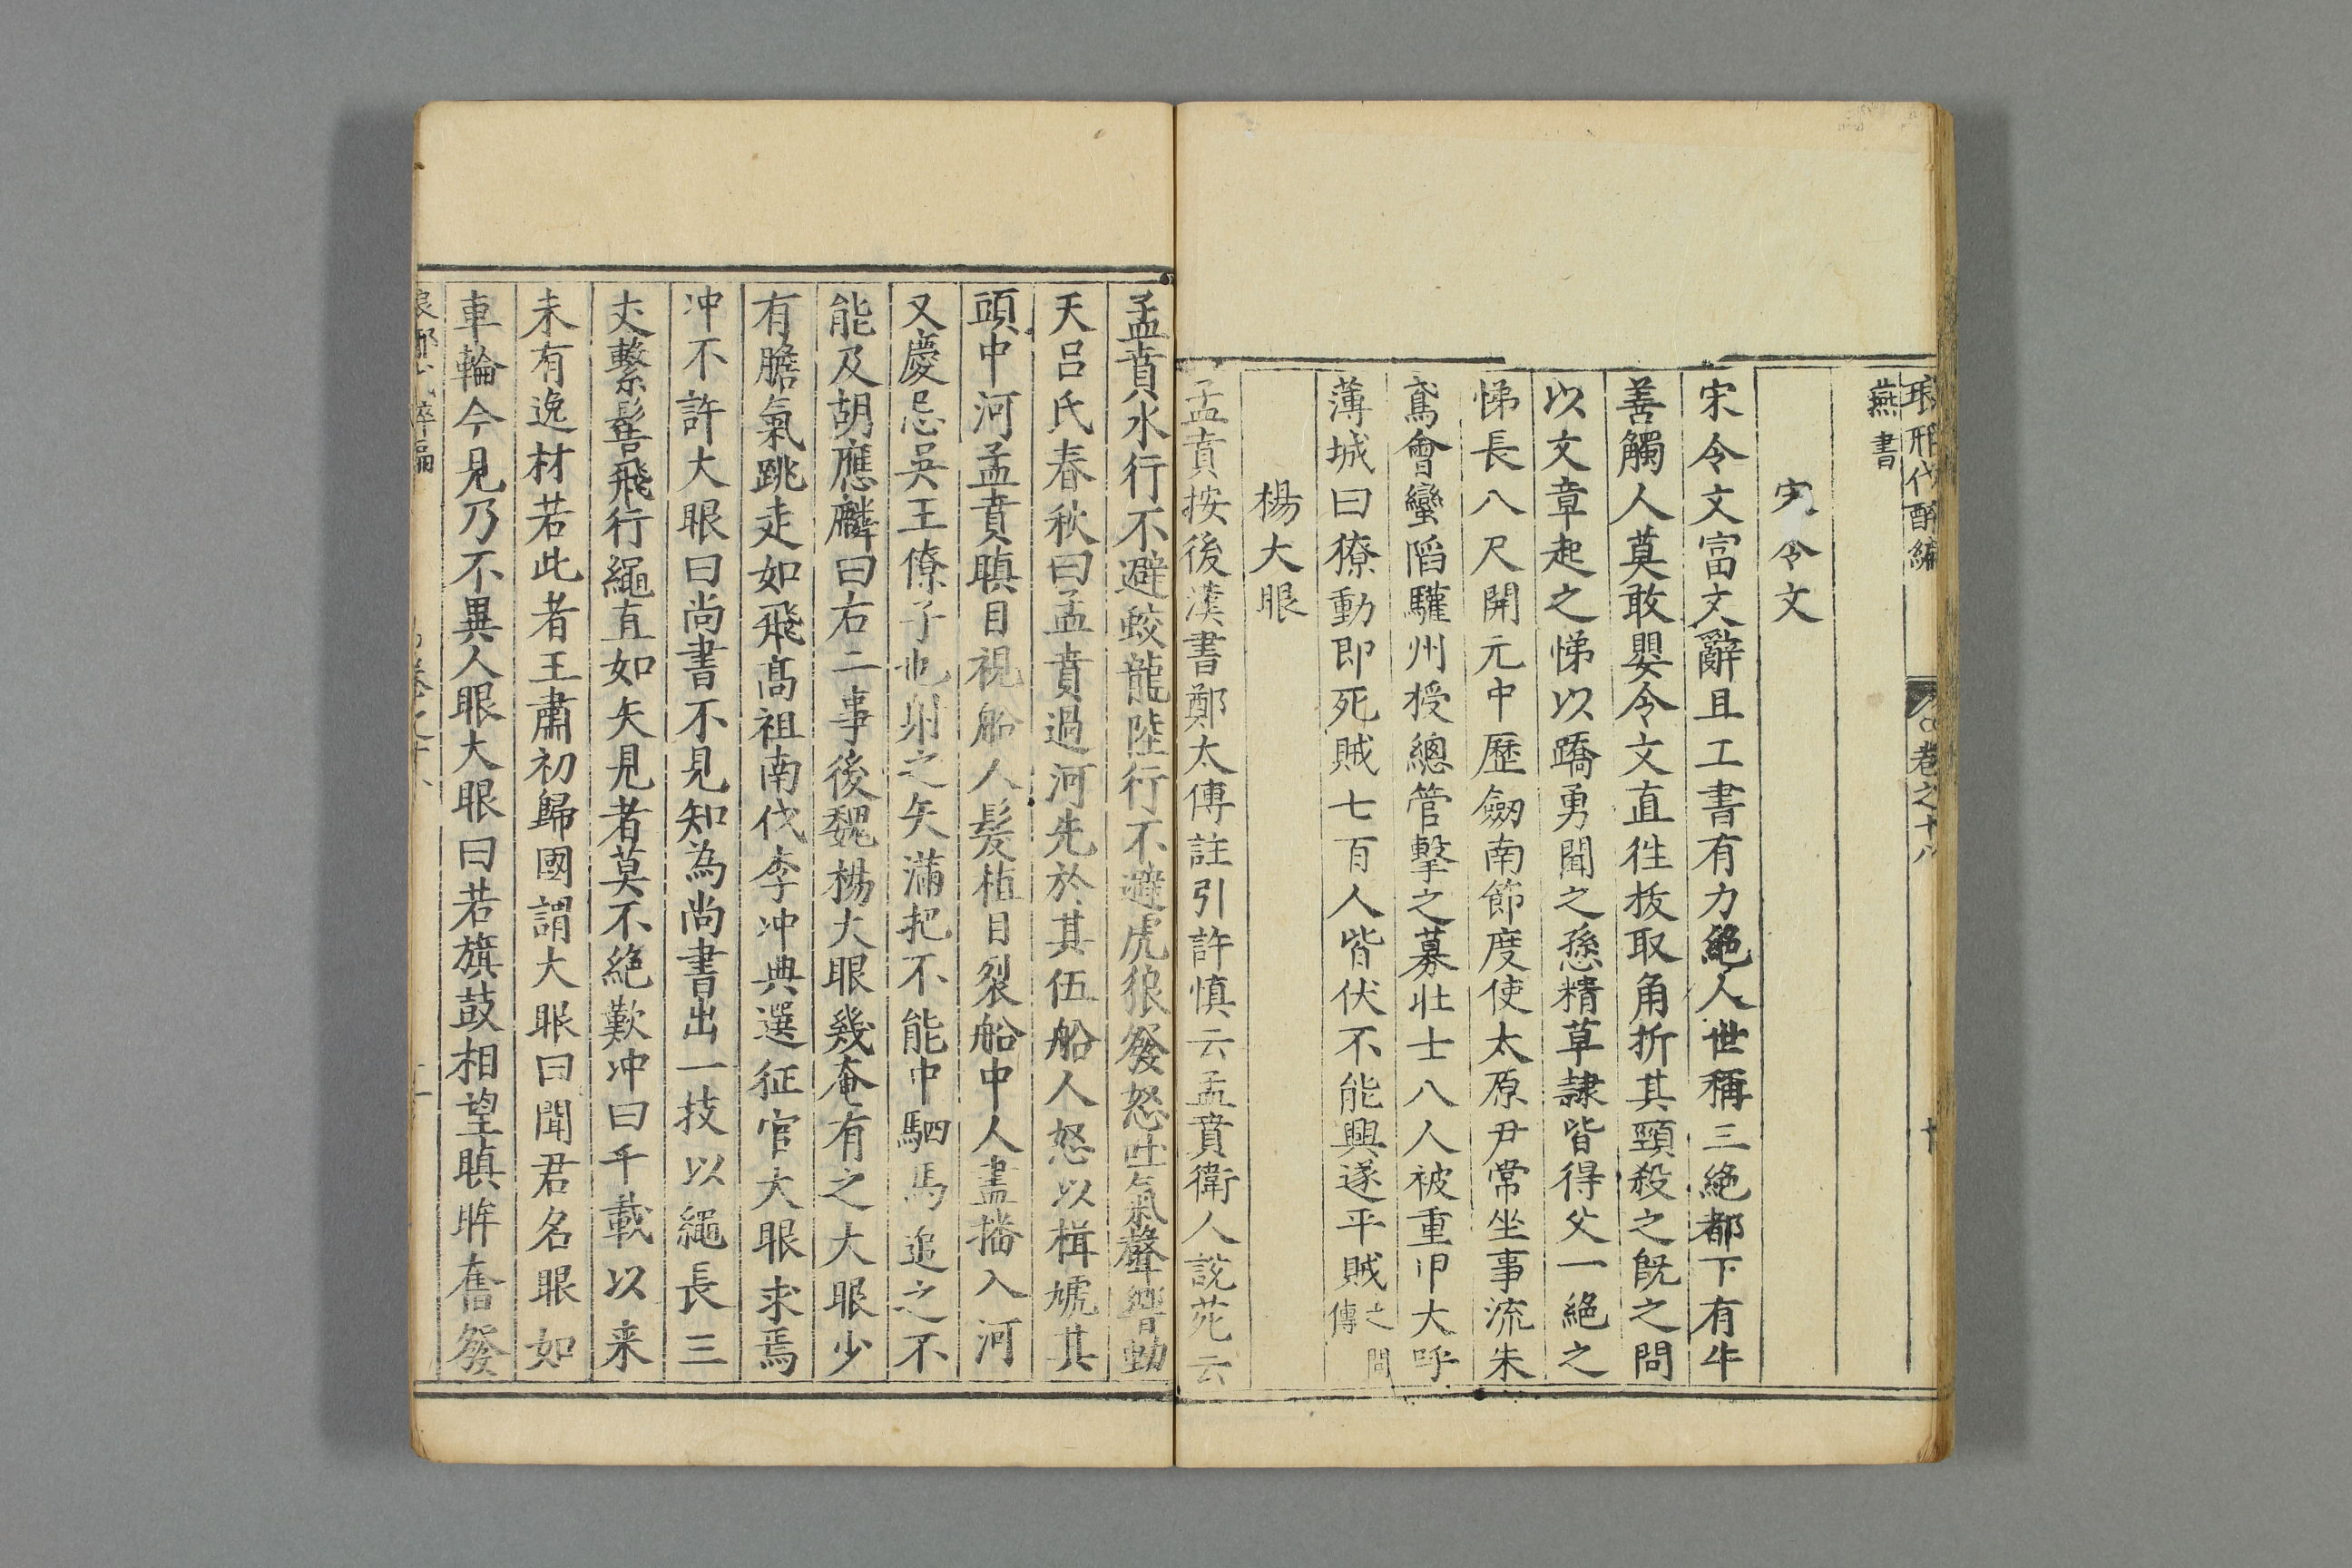 琅邪代醉編 卷之十八
燕書
宋令文
宋令文富文辭且工書有力絕人世稱三絕都下有牛
善觸人莫敢嬰令文直徃抜取角折其頸殺之旣之問
以文章起之悌以蹻勇聞之愻精草隷皆得父一絕之
悌長八尺開元中歷劒南節度使太原尹常坐事流朱
鳶會蠻䧟驩州授總管擊之募壮士八人被重甲大呼
薄城曰獠動即死賊七百人皆伏不能興遂平賊之問傳
楊大眼
孟賁按後漢書鄭太傳註引許慎云孟賁衛人說苑云
孟賁水行不避蛟龍陸行不避虎狼發怒吐氣聲響動
天呂氏春秋曰孟賁過河先於其伍船人怒以楫虓其
頭中河孟賁瞋目視船人髮植目裂船中人盡播入河
又慶忌吳王僚子也射之矢滿把不能中駟馬追之不
能及胡應麟曰右二事後魏楊大眼幾奄有之大眼少
有膽氣跳走如飛高祖南伐李冲典選征官大眼求焉
冲不許大眼曰尚書不見知為尚書出一技以繩長三
丈繫髻飛行繩直如矢見者莫不絕歎冲曰千載以来
未有逸材若此者王肅初歸國謂大眼曰聞君名眼如
車輪今見乃不異人眼大眼曰若旗鼓相望瞋眸奮發
卷之十八